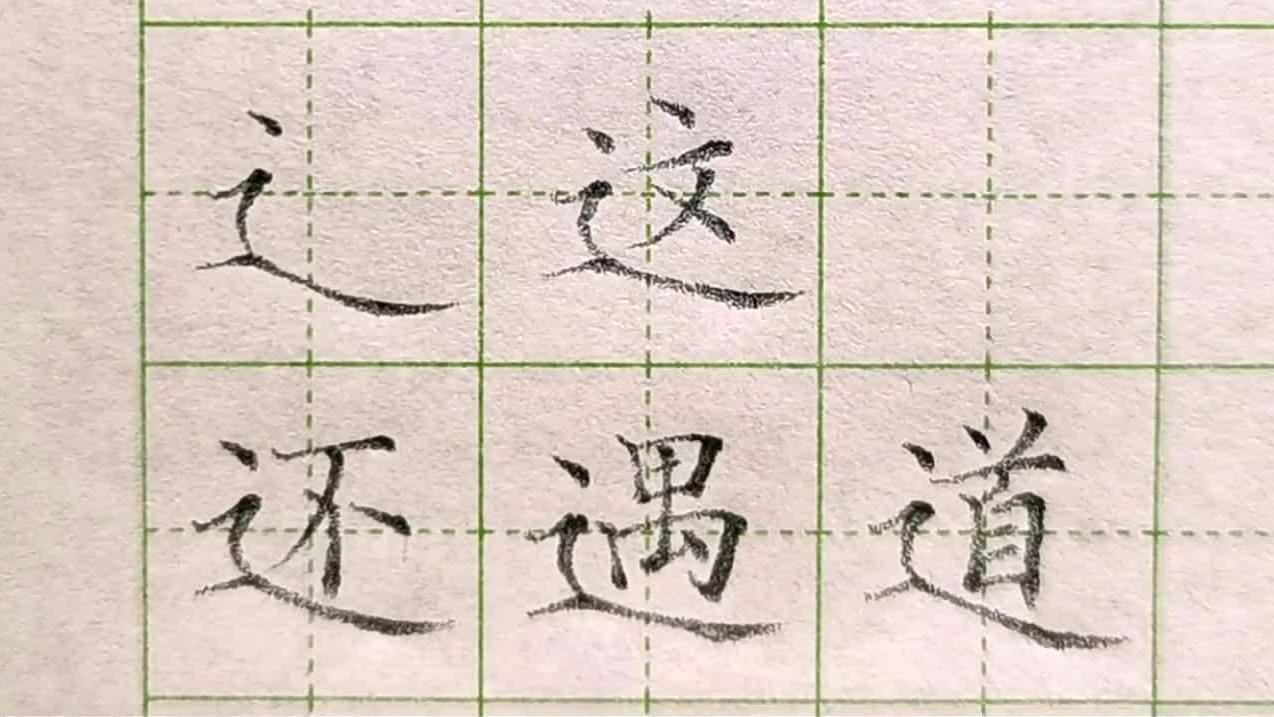 辶这
还遇道